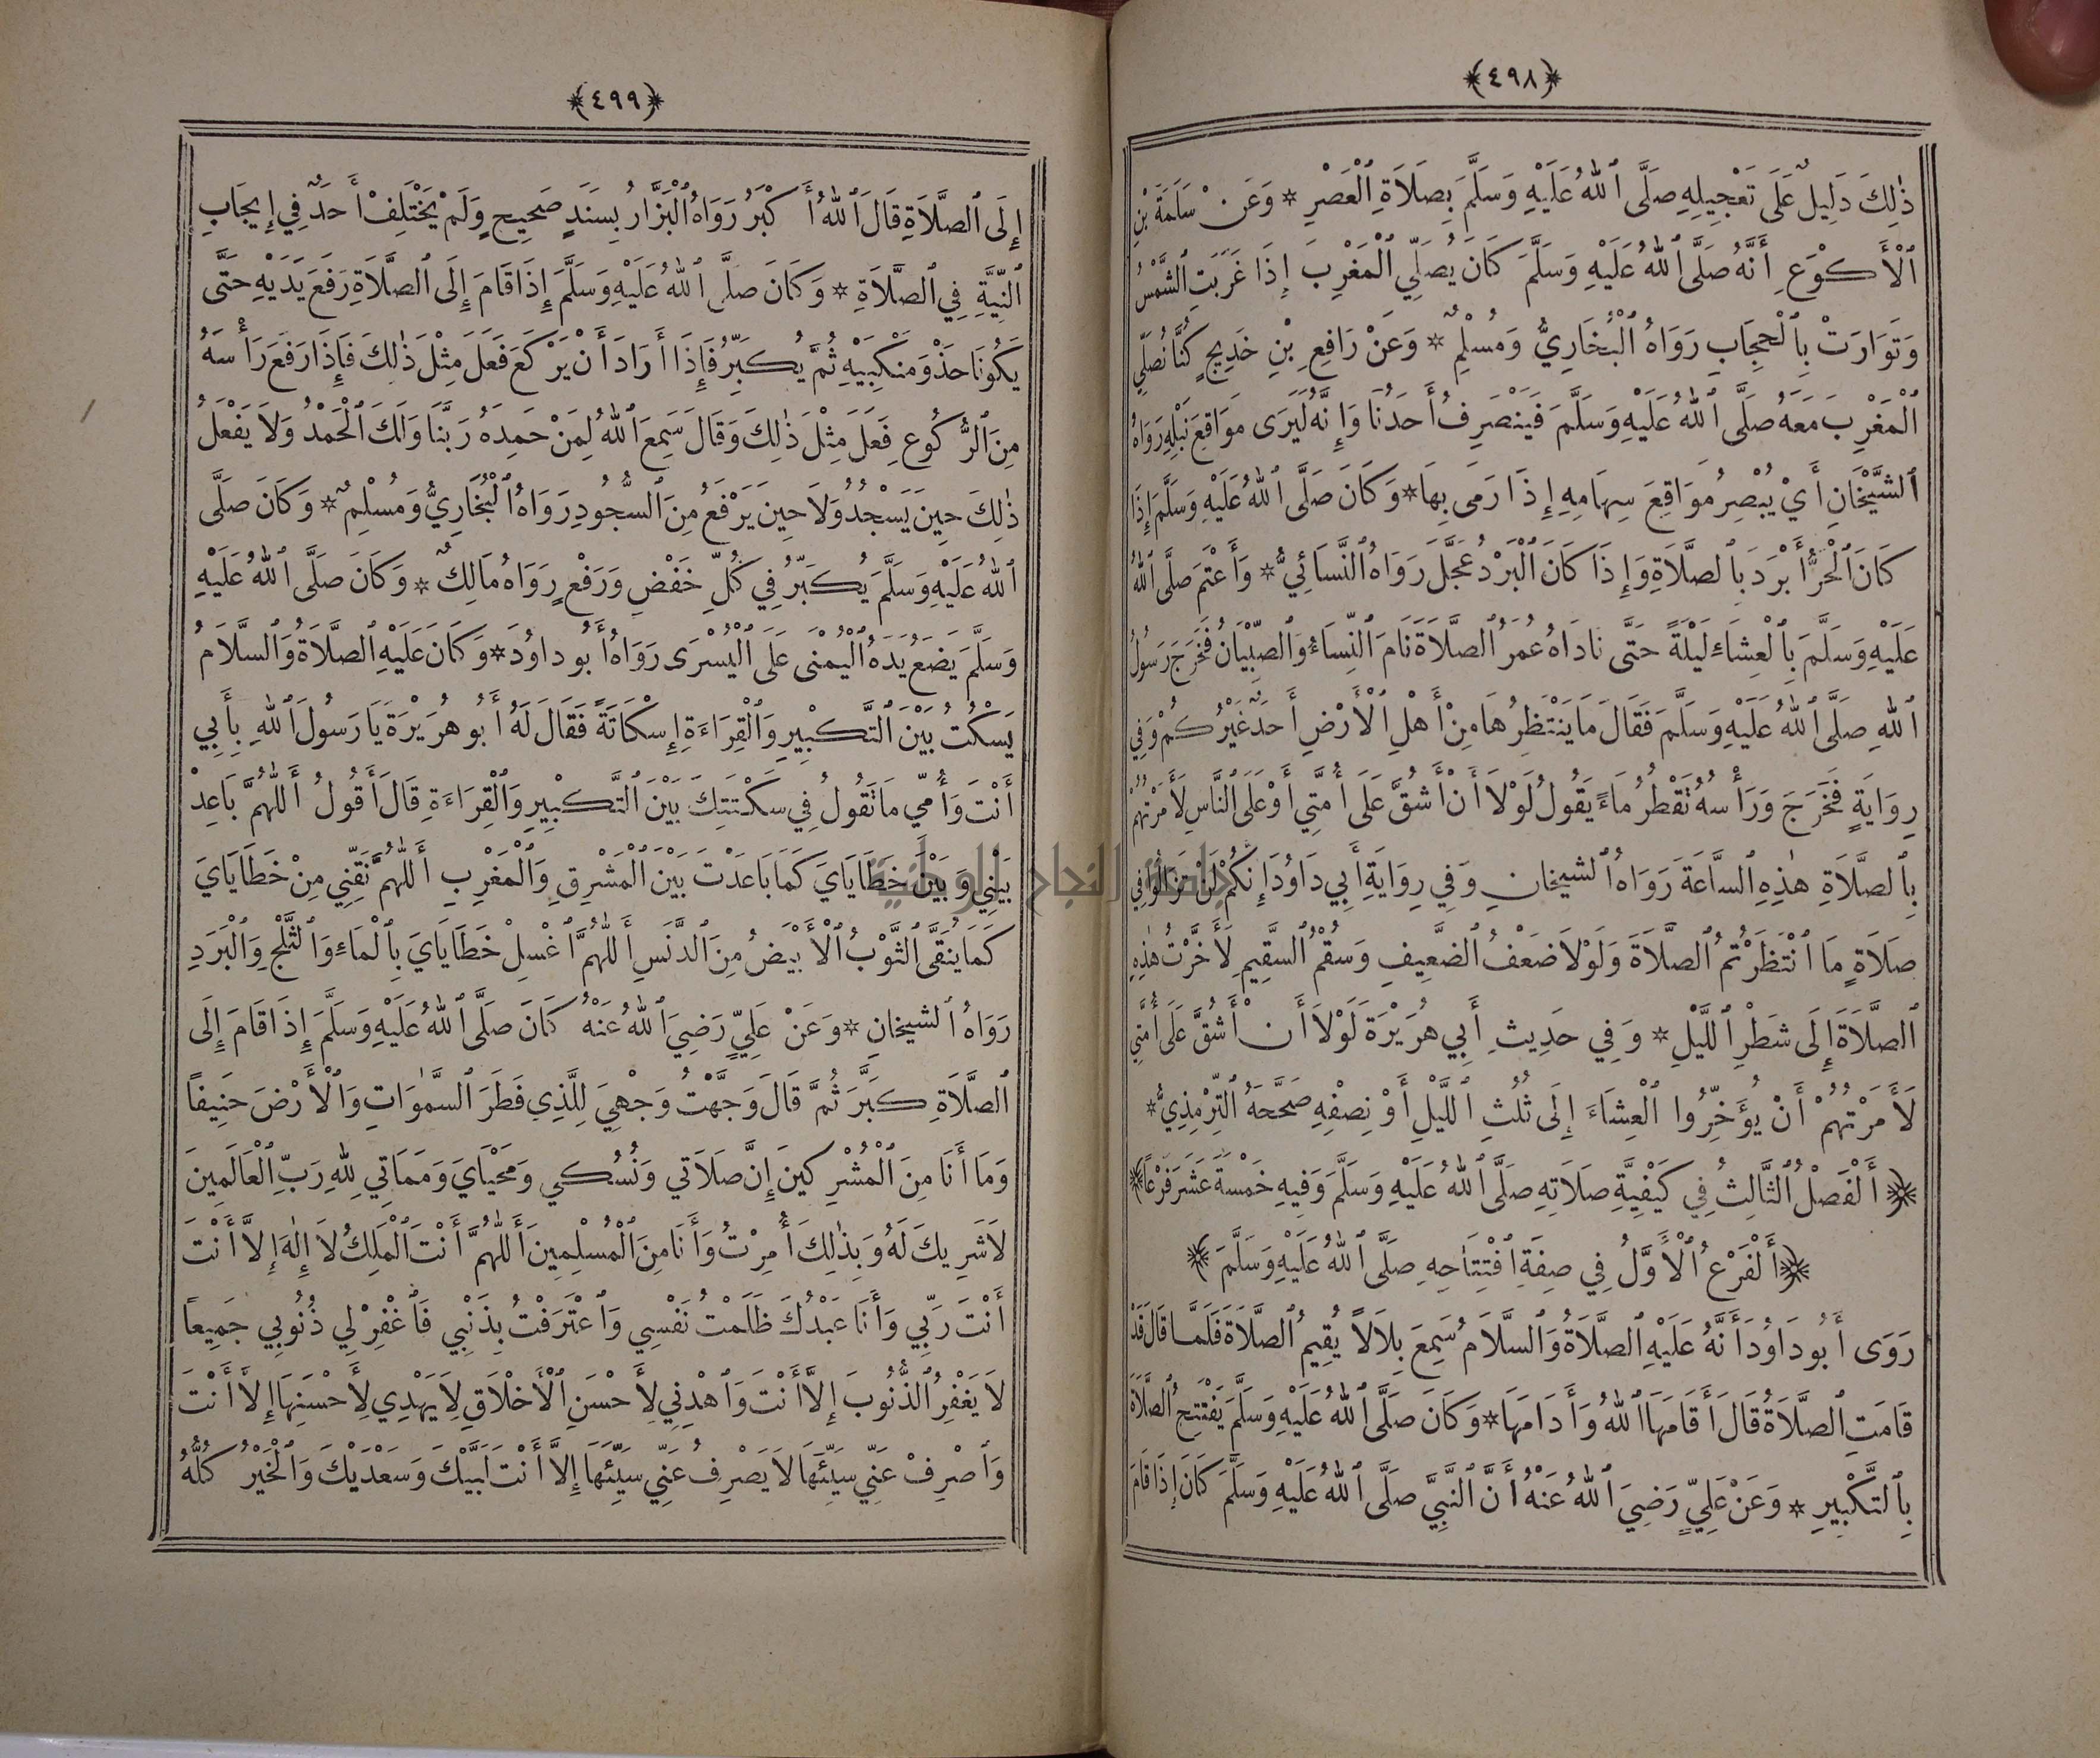 ﴿٤٩٨﴾
ذٰلِكَ دَلِيلٌ عَلَى تَعْجِيلِهِ صَلَّى ٱللّٰهُ عَلَيْهِ وَسَلَّمَ بِصَلَاةِ ٱلْعَصْرِ * وَعَنْ سَلَمَةَ بْنِ
ٱلْأَكْوَعِ أَنَّهُ صَلَّى ٱللّٰهُ عَلَيْهِ وَسَلَّمَ كَانَ يُصَلِّي ٱلْمَغْرِبَ إِذَا غَرَبَتِ ٱلشَّمْسُ
وَتَوَارَتْ بِٱلْحِجَابِ رَوَاهُ ٱلْبُخَارِيُّ وَمُسْلِمٌ * وَعَنْ رَافِعِ بْنِ خَدِيجٍ كُنَّا نُصَلِّي
ٱلْمَغْرِبَ مَعَهُ صَلَّى ٱللّٰهُ عَلَيْهِ وَسَلَّمَ فَيَنْصَرِفُ أَحَدُنَا وَإِنَّهُ لَيَرَى مَوَاقِعَ نَبْلِهِ رَوَاهُ
ٱلشَّيْخَانِ أَيْ يُبْصِرُ مَوَاقِعَ سِهَامِهِ إِذَا رَمَى بِهَا * وَكَانَ صَلَّى ٱللّٰهُ عَلَيْهِ وَسَلَّمَ إِذَا
كَانَ ٱلْحَرُّ أَبْرَدَ بِٱلصَّلَاةِ وَإِذَا كَانَ ٱلْبَرْدُ عَجَّلَ رَوَاهُ ٱلنَّسَائِيُّ * وَأَعْتَمَ صَلَّى ٱللّٰهُ
عَلَيْهِ وَسَلَّمَ بِٱلْعِشَاءِ لَيْلَةً حَتَّى نَادَاهُ عُمَرُ ٱلصَّلَاةَ نَامَ ٱلنِّسَاءُ وَٱلصِّبْيَانُ فَخَرَجَ رَسُولُ
ٱللّٰهِ صَلَّى ٱللّٰهُ عَلَيْهِ وَسَلَّمَ فَقَالَ مَا يَنْتَظِرُهَا مِنْ أَهْلِ ٱلْأَرْضِ أَحَدٌ غَيْرُكُمْ وَفِي
رِوَايَةٍ فَخَرَجَ وَرَأْسُهُ تَقْطُرُ مَاءً يَقُولُ لَوْلَا أَنْ أَشُقَّ عَلَى أُمَّتِي أَوْ عَلَى ٱلنَّاسِ لَأَمَرْتُهُمْ
بِٱلصَّلَاةِ هٰذِهِ ٱلسَّاعَةَ رَوَاهُ ٱلشَّيْخَانِ وَفِي رِوَايَةِ أَبِي دَاوُدَ إِنَّكُمْ لَنْ تَزَالُوا فِي
صَلَاةٍ مَا ٱنْتَظَرْتُمُ ٱلصَّلَاةَ وَلَوْلَا ضَعْفُ ٱلضَّعِيفِ وَسُقْمُ ٱلسَّقِيمِ لَأَخَّرْتُ هٰذِهِ
ٱلصَّلَاةَ إِلَى شَطْرِ ٱللَّيْلِ * وَفِي حَدِيثِ أَبِي هُرَيْرَةَ لَوْلَا أَنْ أَشُقَّ عَلَى أُمَّتِي
لَأَمَرْتُهُمْ أَنْ يُؤَخِّرُوا ٱلْعِشَاءَ إِلَى ثُلُثِ ٱللَّيْلِ أَوْ نِصْفِهِ صَحَّحَهُ ٱلتِّرْمِذِيُّ *
﴿ أَلْفَصْلُ ٱلثَّالِثُ فِي كَيْفِيَّةِ صَلَاتِهِ صَلَّى ٱللّٰهُ عَلَيْهِ وَسَلَّمَ وَفِيهِ خَمْسَةَ عَشَرَ فَرْعًا ﴾
﴿ أَلْفَرْعُ ٱلْأَوَّلُ فِي صِفَةِ ٱفْتِتَاحِهِ صَلَّى ٱللّٰهُ عَلَيْهِ وَسَلَّمَ ﴾
رَوَى أَبُو دَاوُدَ أَنَّهُ عَلَيْهِ ٱلصَّلَاةُ وَٱلسَّلَامُ سَمِعَ بِلَالًا يُقِيمُ ٱلصَّلَاةَ فَلَمَّا قَالَ قَدْ
قَامَتِ ٱلصَّلَاةُ قَالَ أَقَامَهَا ٱللّٰهُ وَأَدَامَهَا * وَكَانَ صَلَّى ٱللّٰهُ عَلَيْهِ وَسَلَّمَ يَفْتَتِحُ ٱلصَّلَاةَ
بِٱلتَّكْبِيرِ * وَعَنْ عَلِيٍّ رَضِيَ ٱللّٰهُ عَنْهُ أَنَّ ٱلنَّبِيَّ صَلَّى ٱللّٰهُ عَلَيْهِ وَسَلَّمَ كَانَ إِذَا قَامَ
﴿٤٩٩﴾
إِلَى ٱلصَّلَاةِ قَالَ ٱللّٰهُ أَكْبَرُ رَوَاهُ ٱلْبَزَّارُ بِسَنَدٍ صَحِيحٍ وَلَمْ يَخْتَلِفْ أَحَدٌ فِي إِيجَابِ
ٱلنِّيَّةِ فِي ٱلصَّلَاةِ * وَكَانَ صَلَّى ٱللّٰهُ عَلَيْهِ وَسَلَّمَ إِذَا قَامَ إِلَى ٱلصَّلَاةِ رَفَعَ يَدَيْهِ حَتَّى
يَكُونَا حَذْوَ مَنْكِبَيْهِ ثُمَّ يُكَبِّرُ فَإِذَا أَرَادَ أَنْ يَرْكَعَ فَعَلَ مِثْلَ ذٰلِكَ فَإِذَا رَفَعَ رَأْسَهُ
مِنَ ٱلرُّكُوعِ فَعَلَ مِثْلَ ذٰلِكَ وَقَالَ سَمِعَ ٱللّٰهُ لِمَنْ حَمِدَهُ رَبَّنَا وَلَكَ ٱلْحَمْدُ وَلَا يَفْعَلُ
ذٰلِكَ حِينَ يَسْجُدُ وَلَا حِينَ يَرْفَعُ مِنَ ٱلسُّجُودِ رَوَاهُ ٱلْبُخَارِيُّ وَمُسْلِمٌ * وَكَانَ صَلَّى
ٱللّٰهُ عَلَيْهِ وَسَلَّمَ يُكَبِّرُ فِي كُلِّ خَفْضٍ وَرَفْعٍ رَوَاهُ مَالِكٌ * وَكَانَ صَلَّى ٱللّٰهُ عَلَيْهِ
وَسَلَّمَ يَضَعُ يَدَهُ ٱلْيُمْنَى عَلَى ٱلْيُسْرَى رَوَاهُ أَبُو دَاوُدَ * وَكَانَ عَلَيْهِ ٱلصَّلَاةُ وَٱلسَّلَامُ
يَسْكُتُ بَيْنَ ٱلتَّكْبِيرِ وَٱلْقِرَاءَةِ إِسْكَاتَةً فَقَالَ لَهُ أَبُو هُرَيْرَةَ يَا رَسُولَ ٱللّٰهِ بِأَبِي
أَنْتَ وَأُمِّي مَا تَقُولُ فِي سَكْتَتِكَ بَيْنَ ٱلتَّكْبِيرِ وَٱلْقِرَاءَةِ قَالَ أَقُولُ أَللّٰهُمَّ بَاعِدْ
بَيْنِي وَبَيْنَ خَطَايَايَ كَمَا بَاعَدْتَ بَيْنَ ٱلْمَشْرِقِ وَٱلْمَغْرِبِ أَللّٰهُمَّ نَقِّنِي مِنْ خَطَايَايَ
كَمَا يُنَقَّى ٱلثَّوْبُ ٱلْأَبْيَضُ مِنَ ٱلدَّنَسِ أَللّٰهُمَّ ٱغْسِلْ خَطَايَايَ بِٱلْمَاءِ وَٱلثَّلْجِ وَٱلْبَرَدِ
رَوَاهُ ٱلشَّيْخَانِ * وَعَنْ عَلِيٍّ رَضِيَ ٱللّٰهُ عَنْهُ كَانَ صَلَّى ٱللّٰهُ عَلَيْهِ وَسَلَّمَ إِذَا قَامَ إِلَى
ٱلصَّلَاةِ كَبَّرَ ثُمَّ قَالَ وَجَّهْتُ وَجْهِيَ لِلَّذِي فَطَرَ ٱلسَّمٰوَاتِ وَٱلْأَرْضَ حَنِيفًا
وَمَا أَنَا مِنَ ٱلْمُشْرِكِينَ إِنَّ صَلَاتِي وَنُسُكِي وَمَحْيَايَ وَمَمَاتِي لِلّٰهِ رَبِّ ٱلْعَالَمِينَ
لَا شَرِيكَ لَهُ وَبِذٰلِكَ أُمِرْتُ وَأَنَا مِنَ ٱلْمُسْلِمِينَ أَللّٰهُمَّ أَنْتَ ٱلْمَلِكُ لَا إِلٰهَ إِلَّا أَنْتَ
أَنْتَ رَبِّي وَأَنَا عَبْدُكَ ظَلَمْتُ نَفْسِي وَٱعْتَرَفْتُ بِذَنْبِي فَٱغْفِرْ لِي ذُنُوبِي جَمِيعًا
لَا يَغْفِرُ ٱلذُّنُوبَ إِلَّا أَنْتَ وَٱهْدِنِي لِأَحْسَنِ ٱلْأَخْلَاقِ لَا يَهْدِي لِأَحْسَنِهَا إِلَّا أَنْتَ
وَٱصْرِفْ عَنِّي سَيِّئَهَا لَا يَصْرِفُ عَنِّي سَيِّئَهَا إِلَّا أَنْتَ لَبَّيْكَ وَسَعْدَيْكَ وَٱلْخَيْرُ كُلُّهُ
جامعة النجاح الوطنية